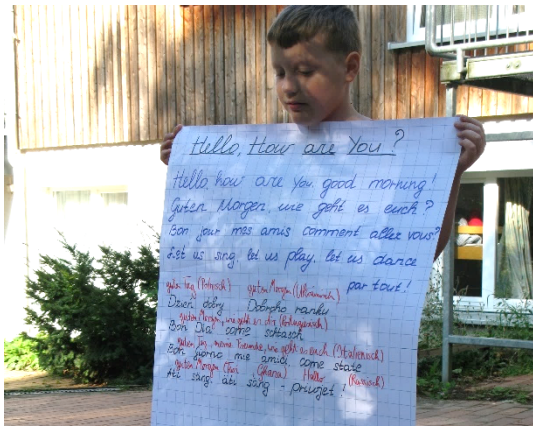 Hello, How are You?
Hello, how are you, good morning!
Guten Morgen, wie geht es euch?
Bon jour mes amis comment allez vous?
Let us sing, let us play, let us dance
par tout!
guten Tag (Polnisch) guten Morgen (Ukrainisch)
Dzien dobry Dobroho ranku
guten Morgen, wie geht es dir (Portugiesisch)
Bon Dia come
guten Tag, meine Freunde, wie geht es euch (Italienisch)
Bon giorno mie amici come state
guten Morgen (Twi, Ghana) Hallo (Russisch)
Ati säng, ati säng - priwjet!